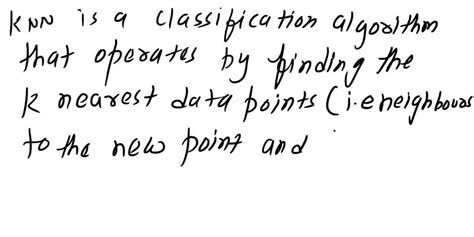 KNN is a classification algorithm
that operates by finding the
k nearest data points (i.e neighbours
to the new point and